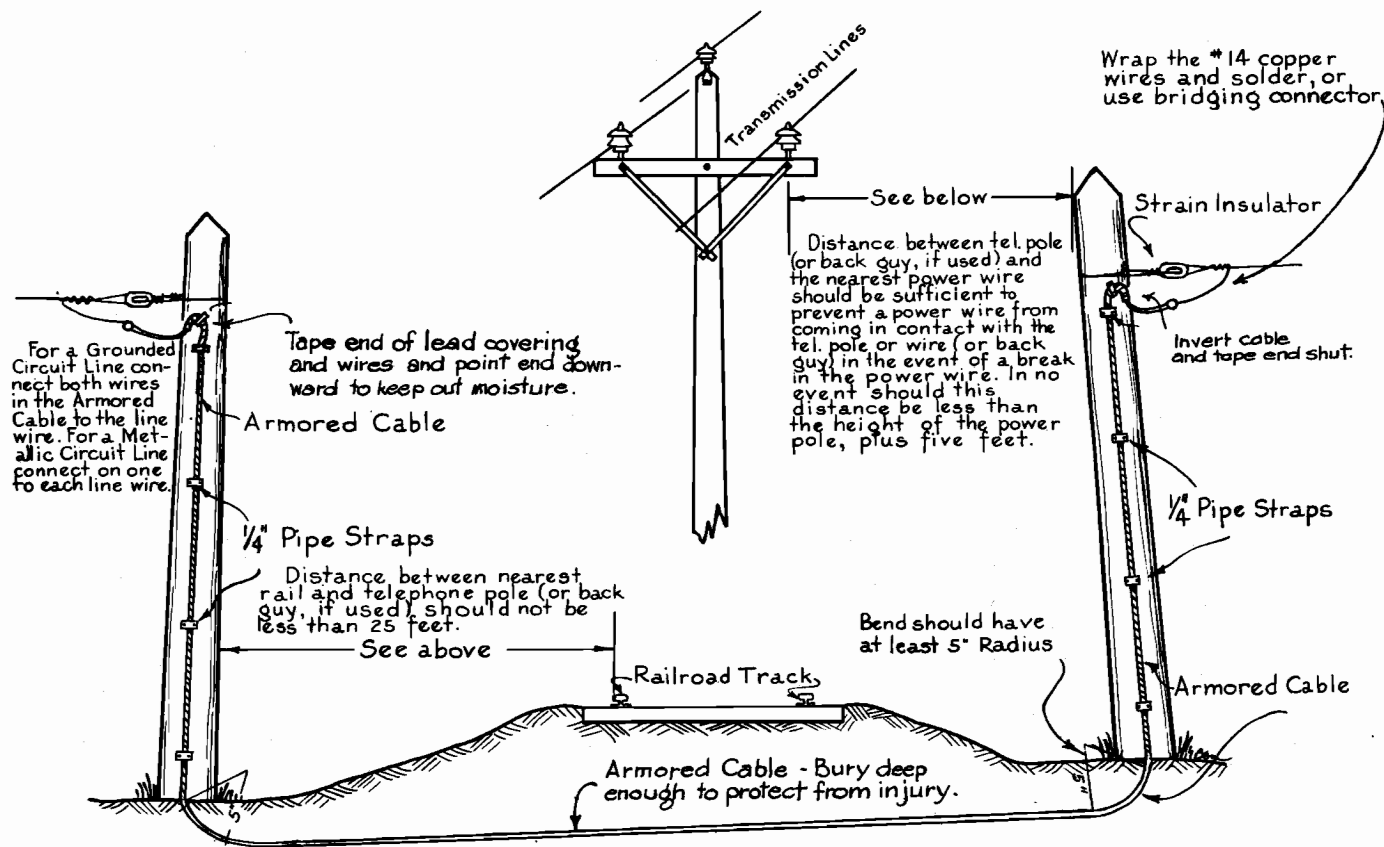 Transmission Lines
Wrap the #14 copper
wires and solder, or
use bridging connector
See below
Strain Insulator
Distance between tel. pole
(or back guy, if used) and
the nearest power wire
should be sufficient to
prevent a power wire from
coming in contact with the
tel. pole or wire (or back
guy) in the event of a break
in the power wire. In no
event should this
distance be less than
the height of the power
pole, plus five feet.
Invert cable
and tape end shut.
Tape end of lead covering
and wires and point end down-
ward to keep out moisture.
For a Grounded
Circuit Line con-
nect both wires
in the Armored
Cable to the line
wire. For a Met-
allic Circuit Line
connect on one
to each line wire.
Armored Cable
1/4" Pipe Straps
1/4" Pipe Straps
Distance between nearest
rail and telephone pole (or back
guy, if used) should not be
less than 25 feet.
See above
Bend should have
at least 5" Radius
Railroad Track
Armored Cable
Armored Cable - Bury deep
enough to protect from injury.
5"
5"